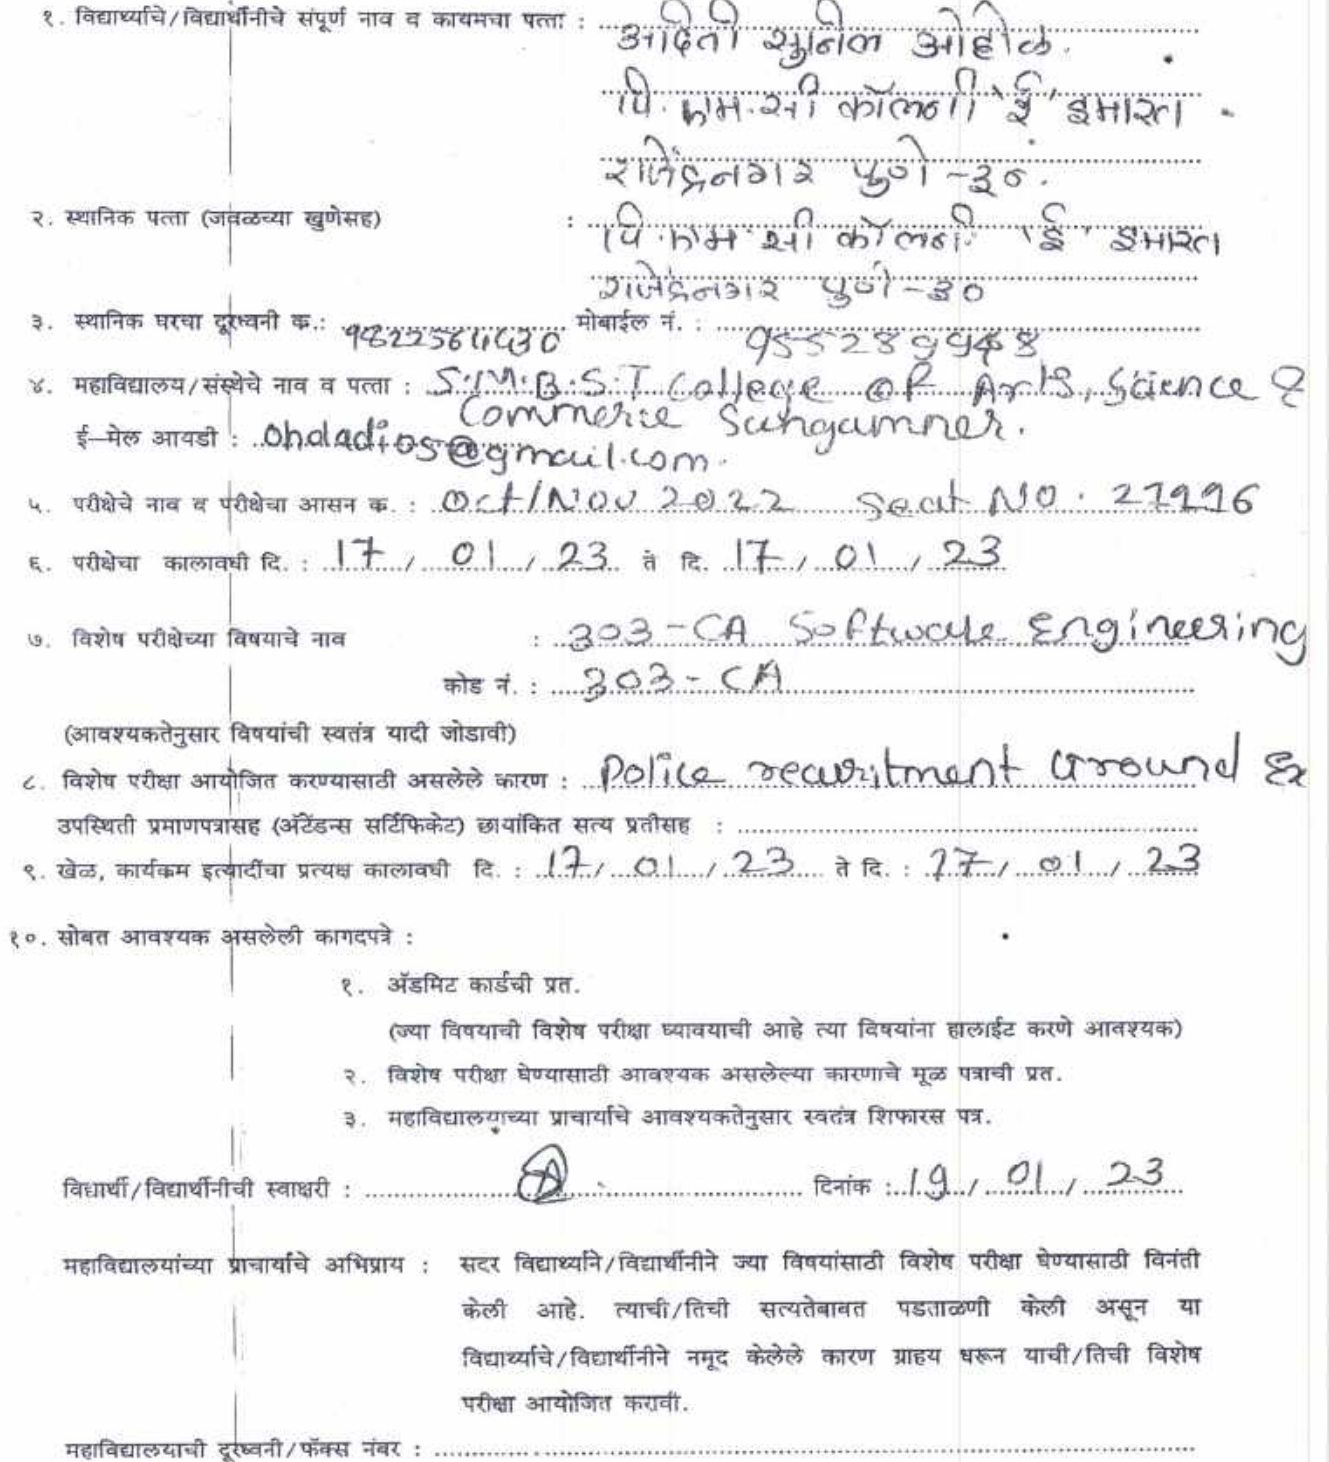 १. विद्यार्थ्याचे/विद्यार्थीनीचे संपूर्ण नाव व कायमचा पत्ता : अदिती सुनिल ओहोळ.
पि. एम. सी कॉलनी 'ई' इमारत
राजेंद्रनगर पुणे -३०.
२. स्थानिक पत्ता (जवळच्या खुणेसह) : पि. एम सी कॉलनी 'ई' इमारत
राजेंद्रनगर पुणे -३०
३. स्थानिक घरचा दूरध्वनी क.: मोबाईल नं. :
४. महाविद्यालय/संस्थेचे नाव व पत्ता : S.M.B.S.T College of Arts, Science &
Commerce Sangamner.
ई-मेल आयडी : @gmail.com.
५. परीक्षेचे नाव व परीक्षेचा आसन क. : Oct/Nov 2022 Seat No.
६. परीक्षेचा कालावधी दि. : 17 / 01 / 23 ते दि. 17 / 01 / 23
७. विशेष परीक्षेच्या विषयाचे नाव : 303-CA Software Engineering
कोड नं. : 303-CA
(आवश्यकतेनुसार विषयांची स्वतंत्र यादी जोडावी)
८. विशेष परीक्षा आयोजित करण्यासाठी असलेले कारण : Police recuritment Ground Ex
उपस्थिती प्रमाणपत्रासह (अ‍ॅटेंडन्स सर्टिफिकेट) छायांकित सत्य प्रतीसह :
९. खेळ, कार्यकम इत्यादींचा प्रत्यक्ष कालावधी दि. : 17 / 01 / 23 ते दि. : 17 / 01 / 23
१०. सोबत आवश्यक असलेली कागदपत्रे :
१. अ‍ॅडमिट कार्डची प्रत.
(ज्या विषयाची विशेष परीक्षा घ्यावयाची आहे त्या विषयांना हालाईट करणे आवश्यक)
२. विशेष परीक्षा घेण्यासाठी आवश्यक असलेल्या कारणाचे मूळ पत्राची प्रत.
३. महाविद्यालयाच्या प्राचार्यांचे आवश्यकतेनुसार स्वतंत्र शिफारस पत्र.
विधार्थी/विद्यार्थीनीची स्वाक्षरी : दिनांक : 19 / 01 / 23
महाविद्यालयांच्या प्राचार्यांचे अभिप्राय : सदर विद्यार्थ्याने/विद्यार्थीनीने ज्या विषयांसाठी विशेष परीक्षा घेण्यासाठी विनंती
केली आहे. त्याची/तिची सत्यतेबाबत पडताळणी केली असून या
विद्यार्थ्याचे/विद्यार्थीनीने नमूद केलेले कारण ग्राहय धरून याची/तिची विशेष
परीक्षा आयोजित करावी.
महाविद्यालयाची दूरध्वनी/फॅक्स नंबर :